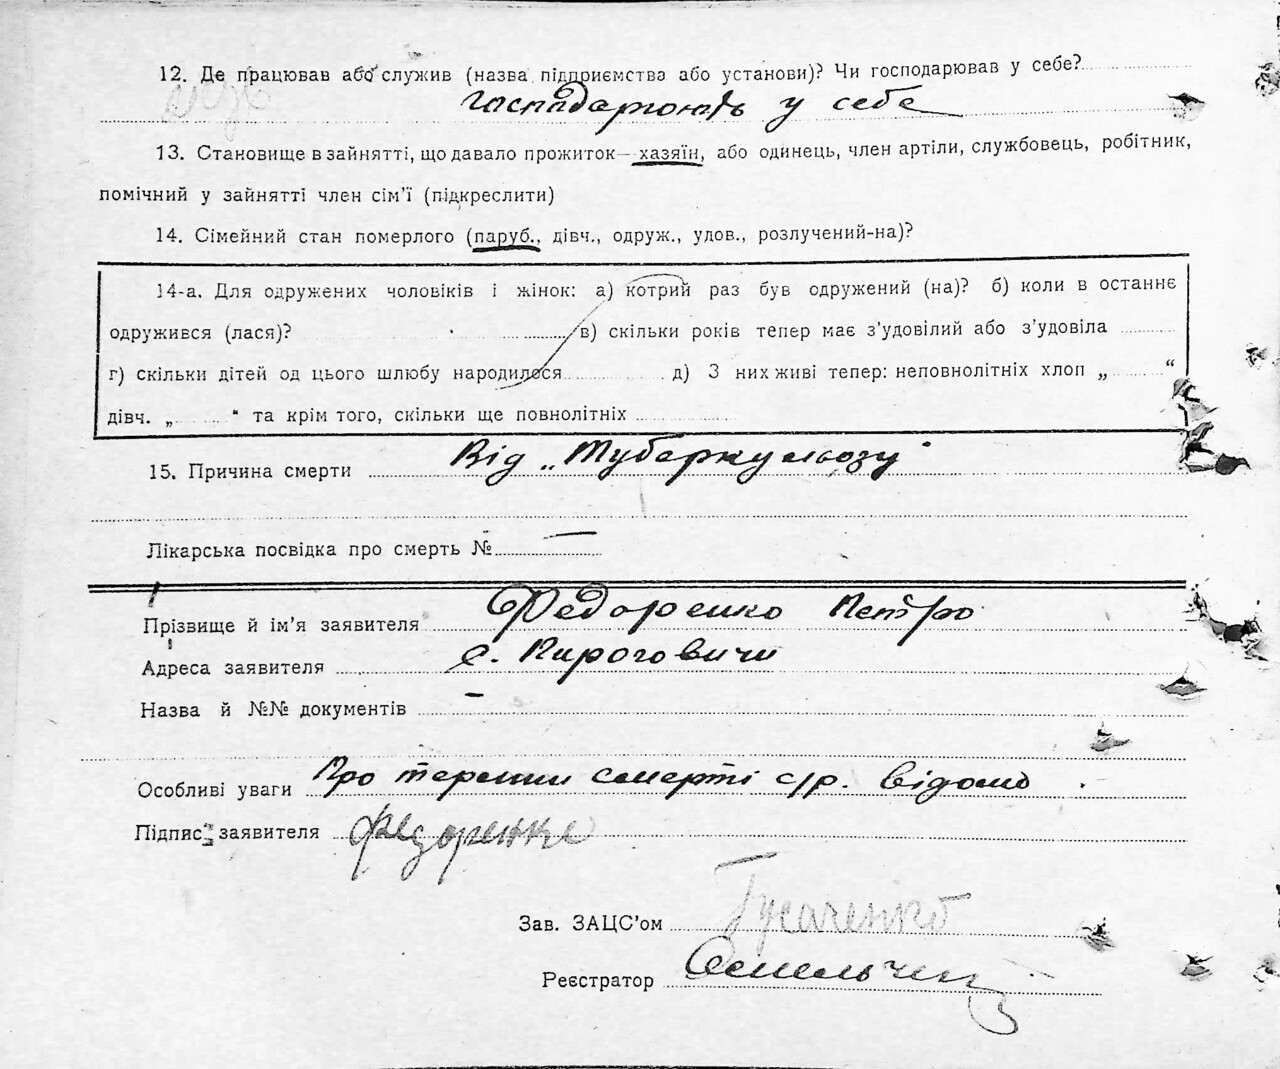 12. Де працював або служив (назва підприємства або установи)? Чи господарював у себе?
Господарюють у себе
13. Становище в зайнятті, що давало прожиток — хазяїн, або одинець, член артіли, службовець, робітник,
помічний у зайнятті член сім’ї (підкреслити)
14. Сімейний стан померлого (паруб., дівч., одруж., удов., розлучений-на)?
14-а. Для одружених чоловіків і жінок: а) котрий раз був одружений (на)? б) коли в останнє
одружився (лася)? в) скільки років тепер має з’удовілий або з’удовіла
г) скільки дітей од цього шлюбу народилося д) З них живі тепер: неповнолітніх хлоп „ “
дівч. „ “ та крім того, скільки ще повнолітніх
15. Причина смерти Від „Туберкульозу"
Лікарська посвідка про смерть № —
Прізвище й ім’я заявителя Федоренко Петро
Адреса заявителя с. Пироговичи
Назва й №№ документів —
Особливі уваги Про термин смерті с/р. відомо.
Підпис заявителя Федоренко
Зав. ЗАЦС’ом Гусаченко
Реєстратор